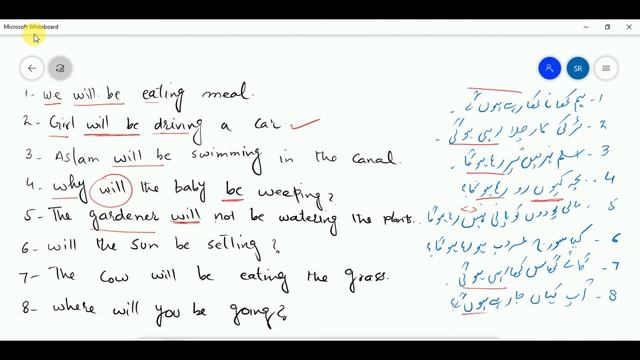 Microsoft Whiteboard
SR
1- we will be eating meal.
2- Girl will be driving a car.
3- Aslam will be swimming in the canal.
4- why will the baby be weeping?
5- The gardener will not be watering the plants.
6- will the sun be setting?
7- The cow will be eating the grass.
8- where will you be going?
1- ہم کھانا کھا رہے ہوں گے۔
2- لڑکی کار چلا رہی ہوگی۔
3- اسلم نہر میں تیر رہا ہوگا۔
4- بچہ کیوں رو رہا ہوگا؟
5- مالی پودوں کو پانی نہیں دے رہا ہوگا
6- کیا سورج غروب ہو رہا ہوگا؟
7- گائے گھاس کھا رہی ہوگی۔
8- آپ کہاں جا رہے ہوں گے؟